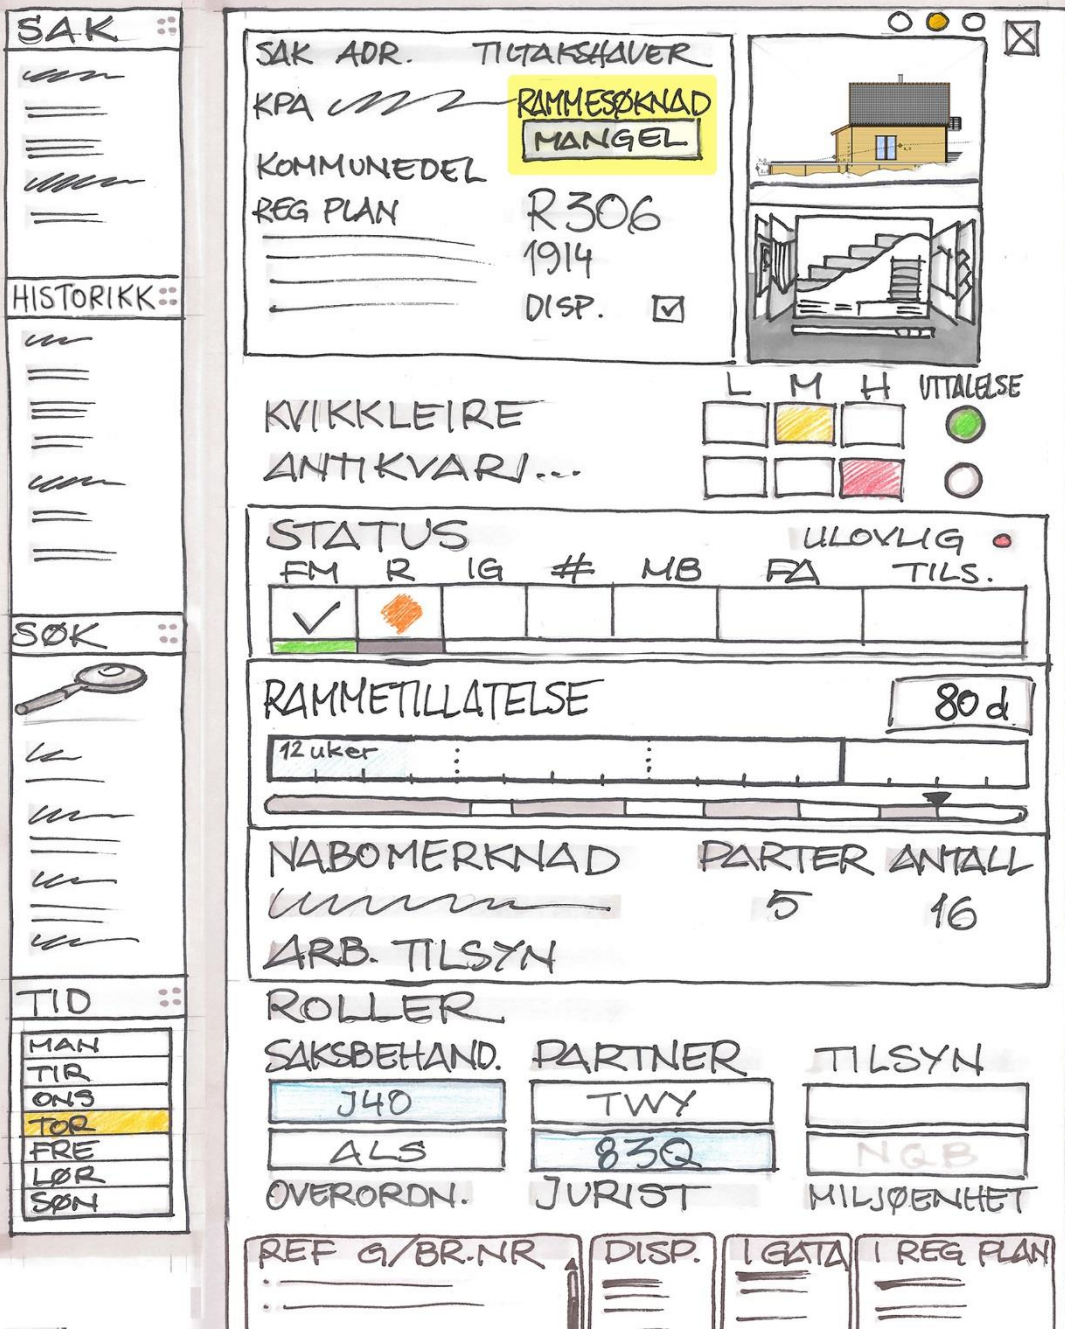 SAK
HISTORIKK
SØK
TID
MAN
TIR
ONS
TOR
FRE
LØR
SØN
SAK ADR. TILTAKSHAVER
KPA RAMMESØKNAD
MANGEL
KOMMUNEDEL
REG PLAN R306
1914
DISP.
L M H UTTALELSE
KVIKKLEIRE
ANTIKVARI...
STATUS ULOVLIG
FM R IG # MB FA TILS.
RAMMETILLATELSE 80 d
12 uker
NABOMERKNAD PARTER ANTALL
5 16
ARB. TILSYN
ROLLER
SAKSBEHAND. PARTNER TILSYN
J40 TWY
ALS 83Q NQB
OVERORDN. JURIST MILJØENHET
REF G/BR.NR DISP. I GATA I REG PLAN